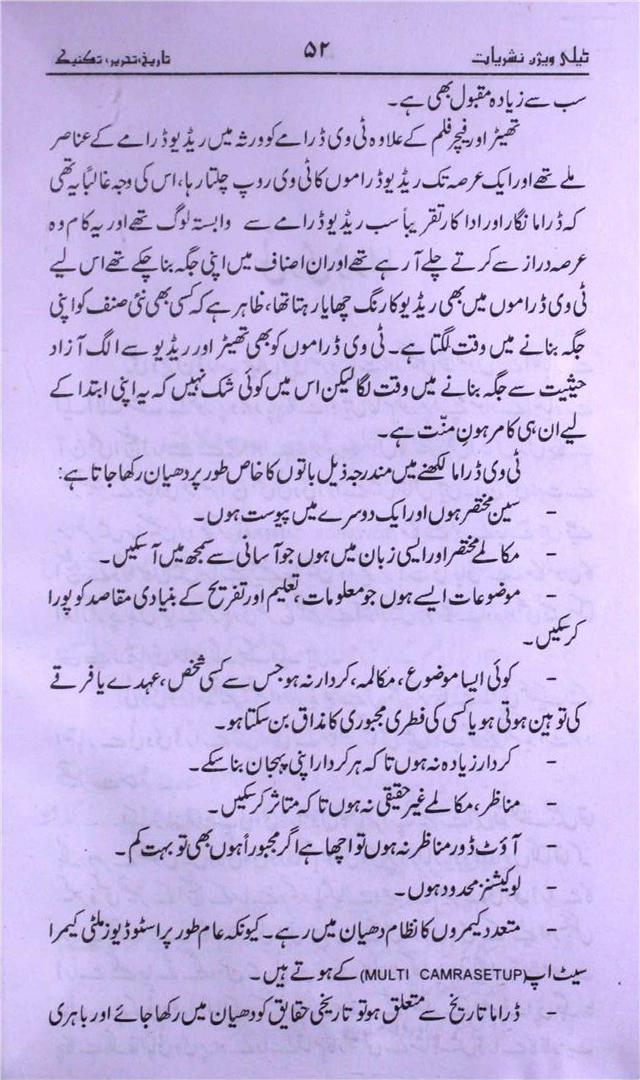 ٹیلی ویژن نشریات ۵۲ تاریخ، تحریر، تکنیک
سب سے زیادہ مقبول بھی ہے۔
تھیٹر اور فیچر فلم کے علاوہ ٹی وی ڈرامے کو ورثہ میں ریڈیو ڈرامے کے عناصر
ملے تھے اور ایک عرصہ تک ریڈیو ڈراموں کا ٹی وی روپ چلتا رہا، اس کی وجہ غالباً یہ تھی
کہ ڈراما نگار اور ادا کار تقریباً سب ریڈیو ڈرامے سے وابستہ لوگ تھے اور یہ کام وہ
عرصہ دراز سے کرتے چلے آ رہے تھے اور ان اصناف میں اپنی جگہ بنا چکے تھے اس لیے
ٹی وی ڈراموں میں بھی ریڈیو کا رنگ چھایا رہتا تھا، ظاہر ہے کہ کسی بھی نئی صنف کو اپنی
جگہ بنانے میں وقت لگتا ہے۔ ٹی وی ڈراموں کو بھی تھیٹر اور ریڈیو سے الگ آزاد
حیثیت سے جگہ بنانے میں وقت لگا لیکن اس میں کوئی شک نہیں کہ یہ اپنی ابتدا کے
لیے ان ہی کا مرہونِ منّت ہے۔
ٹی وی ڈراما لکھنے میں مندرجہ ذیل باتوں کا خاص طور پر دھیان رکھا جاتا ہے:
- سین مختصر ہوں اور ایک دوسرے میں پیوست ہوں۔
- مکالمے مختصر اور ایسی زبان میں ہوں جو آسانی سے سمجھ میں آ سکیں۔
- موضوعات ایسے ہوں جو معلومات، تعلیم اور تفریح کے بنیادی مقاصد کو پورا
کر سکیں۔
- کوئی ایسا موضوع، مکالمہ، کردار نہ ہو جس سے کسی شخص، عہدے یا فرقے
کی توہین ہوتی ہو یا کسی کی فطری مجبوری کا مذاق بن سکتا ہو۔
- کردار زیادہ نہ ہوں تا کہ ہر کردار اپنی پہچان بنا سکے۔
- مناظر، مکالمے غیر حقیقی نہ ہوں تا کہ متاثر کر سکیں۔
- آؤٹ ڈور مناظر نہ ہوں تو اچھا ہے اگر مجبوراً ہوں بھی تو بہت کم۔
- لوکیشنز محدود ہوں۔
- متعدد کیمروں کا نظام دھیان میں رہے۔ کیونکہ عام طور پر اسٹوڈیوز ملٹی کیمرا
سیٹ اپ (MULTI CAMRASETUP) کے ہوتے ہیں۔
- ڈراما تاریخ سے متعلق ہو تو تاریخی حقایق کو دھیان میں رکھا جائے اور باہری